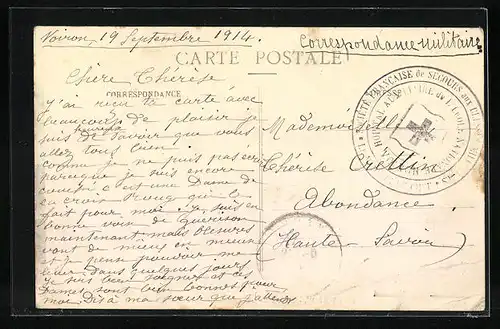 Voiron, 19 Septembre 1914.
Correspondance militaire
CARTE POSTALE
Chère Thérèse
CORRESPONDANCE
J'ai reçu ta carte avec
beaucoup de plaisir je
suis heureuse de savoir que vous
allez tous bien.
comme je ne puis pas écrire
parceque je suis encore
couché c'est une Dame de
la croix Rouge qui le
fait pour moi. Je suis en
bonne voie de guérison
maintenant, mes blessures
vont de mieux en mieux
et je pense pouvoir me
lever dans quelques jours
je suis bien soigné et ces
Dames sont bien bonnes pour
moi. Dis à ma sœur que j'attends
Mademoiselle
Thérèse Crettin
Abondance
(Haute-Savoie)
SOCIÉTÉ FRANÇAISE de SECOURS aux BLESSÉS
HOPITAL AUXILIAIRE de